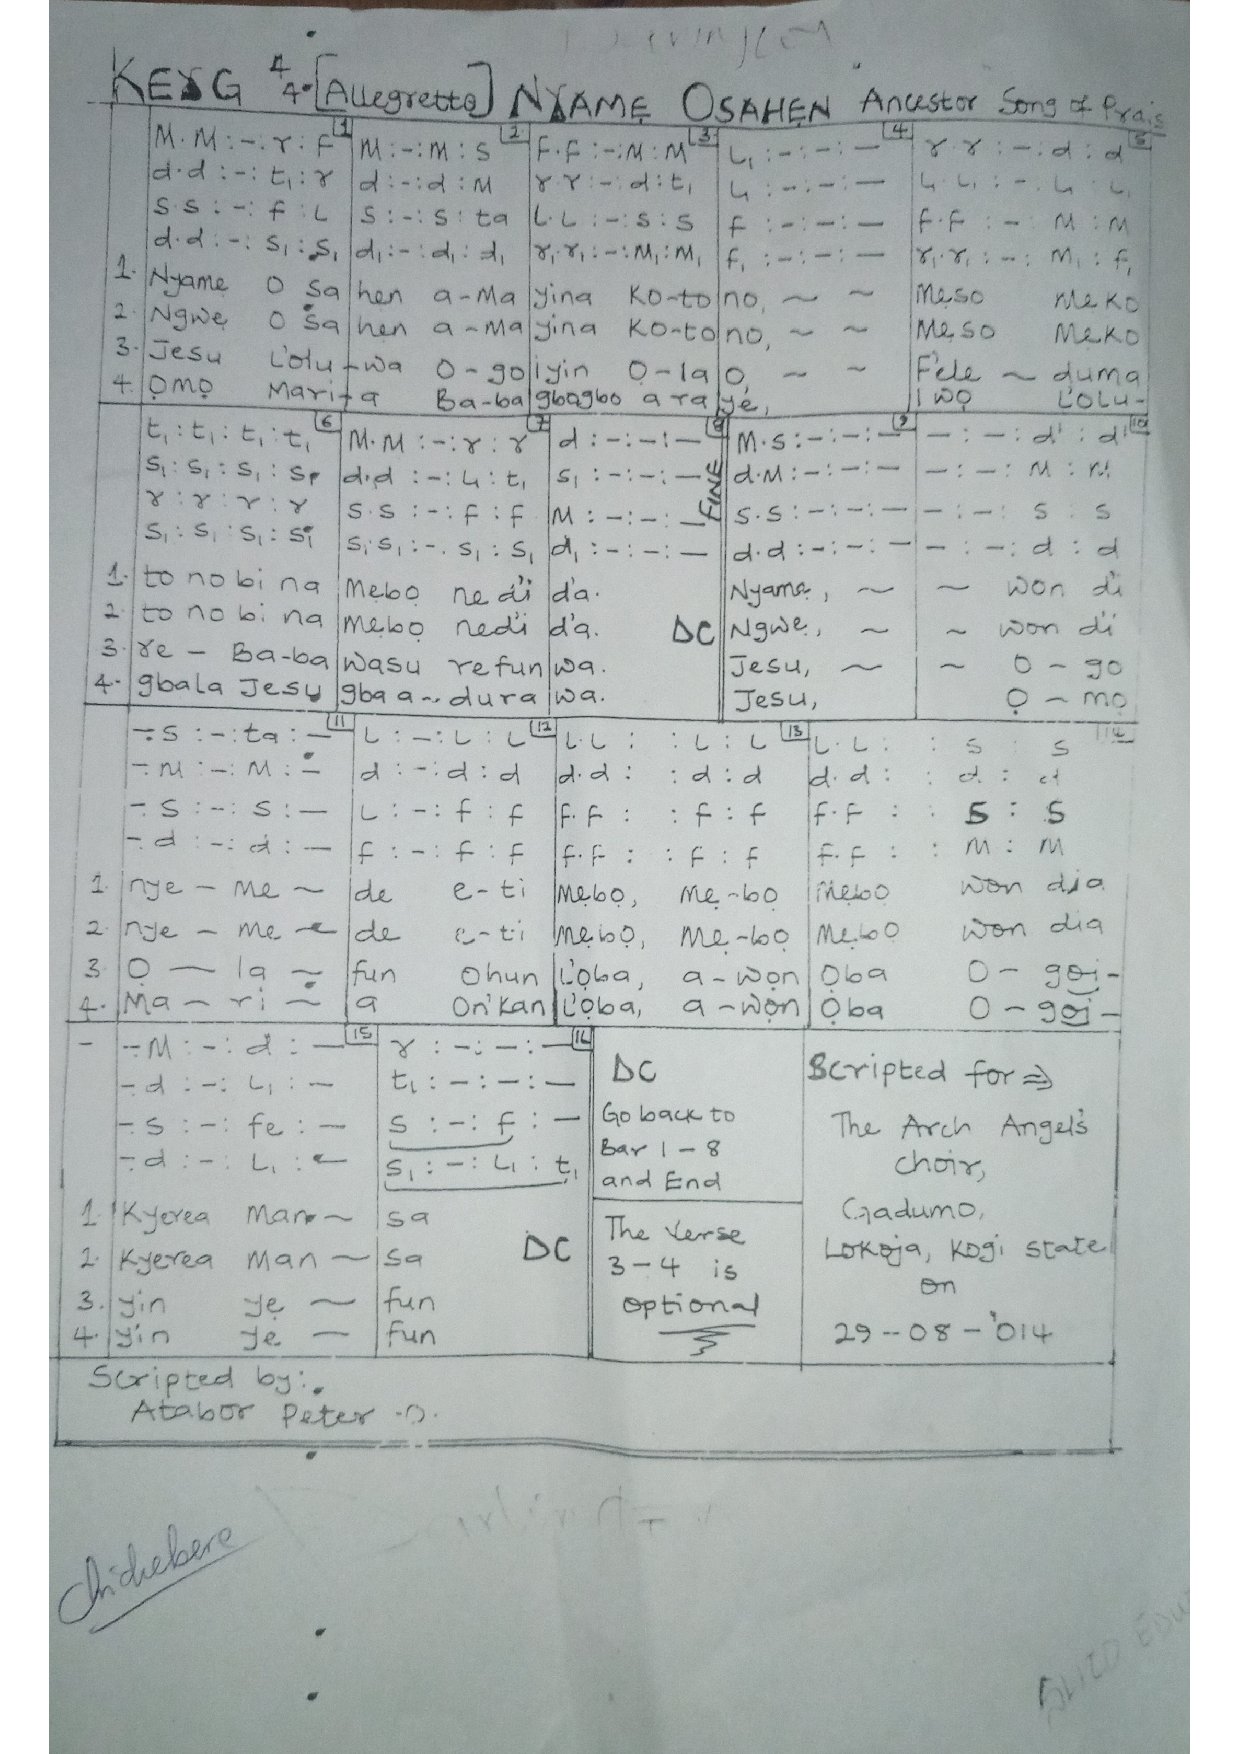 KEY G 4/4 [Allegretto] NYAME OSAHEN Ancestor Song of Prais
1 2 3 4 5
M.M:-:r:F | M:-:M:S | F.F:-:M:M | L₁:-:-:— | r.r:-:d:d
d.d:-:t₁:r | d:-:d:M | r.r:-:d:t₁ | L₁:-:-:— | L₁.L₁:-:L₁:L₁
S.S:-:f:L | S:-:S:ta | L.L:-:S:S | f:-:-:— | F.F:-:M:M
d.d:-:S₁:S₁ | d₁:-:d₁:d₁ | r₁.r₁:-:M₁:M₁ | f₁:-:-:— | r₁.r₁:-:M₁:f₁
1. Nyame O sa | hen a-Ma | yina Ko-to | no, ~ ~ | Mẹso Meko
2. Ngwẹ O sa | hen a-Ma | yina Ko-to | no, ~ ~ | Mẹso Mẹko
3. Jesu L'olu- | wa O-go | iyin Ọ-la | o, ~ ~ | F'ele ~ duma
4. Ọmọ Mari- | a Ba-ba | gbagbo ara | yé, | Iwọ L'OLU-
6 7 8 9 10
t₁:t₁:t₁:t₁ | M.M:-:r:r | d:-:-:— | M.S:-:-:— | —:-:d':d'
S₁:S₁:S₁:S₁ | d.d:-:L₁:t₁ | S₁:-:-:— | d.M:-:-:— | —:-:M:M
r:r:r:r | S.S:-:f:f | M:-:-:— | S.S:-:-:— | —:-:S:S
S₁:S₁:S₁:S₁ | S₁.S₁:-:S₁:S₁ | d₁:-:-:— | d.d:-:-:— | —:-:d:d
FINE
1. to no bi na | Mẹbọ ne di | d'a. | Nyame, ~ | ~ won di
2. to no bi na | Mẹbọ nedi | d'a. DC | Ngwẹ, ~ | ~ won di
3. re - Ba-ba | wasu refun | wa. | Jesu, ~ | ~ O-go
4. gbala Jesu | gba a~dura | wa. | Jesu, | Ọ-mọ
11 12 13 14
-:S:-:ta:— | L:-:L:L | L.L: :L:L | L.L: :S:S
-M:-:M:— | d:-:d:d | d.d: :d:d | d.d: :d:d
-S:-:S:— | L:-:f:f | f.F: :f:f | f.F: :S:S
-d:-:d:— | f:-:f:f | f.F: :f:f | f.F: :M:M
1. nye-Me~ | de e-ti | Mẹbọ, Mẹ-bọ | Mẹbo won dia
2. nye-Me~ | de e-ti | Mẹbọ, Mẹ-bọ | Mẹbo won dia
3. Ọ—la~ | fun Ohun | L'ọba, a-wọn | Ọba O-goi-
4. Ma-ri~ | a On'Kan | L'ọba, a-wọn | Ọba O-goi-
15 16
-:M:-:d:— | r:-:-:—
-d:-:L₁:— | t₁:-:-:—
-S:-:fe:— | S:-:f:—
-d:-:L₁:— | S₁:-:L₁:t₁
1. Kyerea Man~ | sa
2. Kyerea Man~ | sa DC
3. yin yẹ~ | fun
4. yin yẹ— | fun
DC
Go back to
Bar 1-8
and End
The Verse
3-4 is
optional
Scripted for ⇒
The Arch Angel's
choir,
Gadumo,
Lokoja, Kogi state
on
29-08-'014
Scripted by:
Atabor Peter .O.
Chichebere